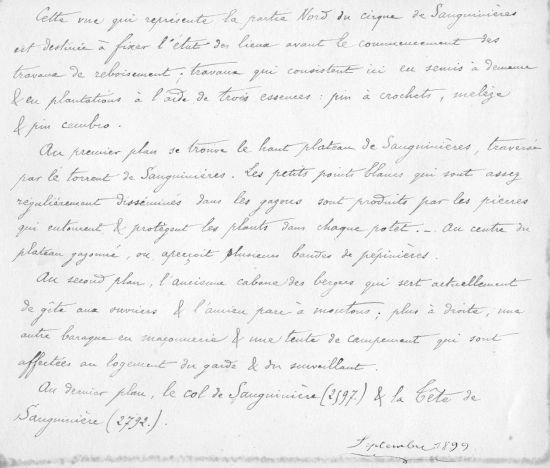 Cette vue qui représente la partie Nord du cirque de Sanguinières
est destinée à fixer l'état des lieux avant le commencement des
travaux de reboisement ; travaux qui consistent ici en semis à demeure
& en plantations à l'aide de trois essences : pin à crochets, mélèze
& pin cembro.
Au premier plan se trouve le haut plateau de Sanguinières, traversé
par le torrent de Sanguinières. Les petits points blancs qui sont assez
régulièrement disséminés dans les gazons sont produits par les pierres
qui entourent & protègent les plants dans chaque potet. — Au centre du
plateau gazonné, on aperçoit plusieurs bandes de pépinières.
Au second plan, l'ancienne cabane des bergers qui sert actuellement
de gîte aux ouviers & l'ancien parc à moutons ; plus à droite, une
autre baraque en maçonnerie & une tente de campement qui sont
affectées au logement du garde & du surveillant.
Au dernier plan, le col de Sanguinière (2597.) & la Tête de
Sanguinière (2792.).
Septembre 1899